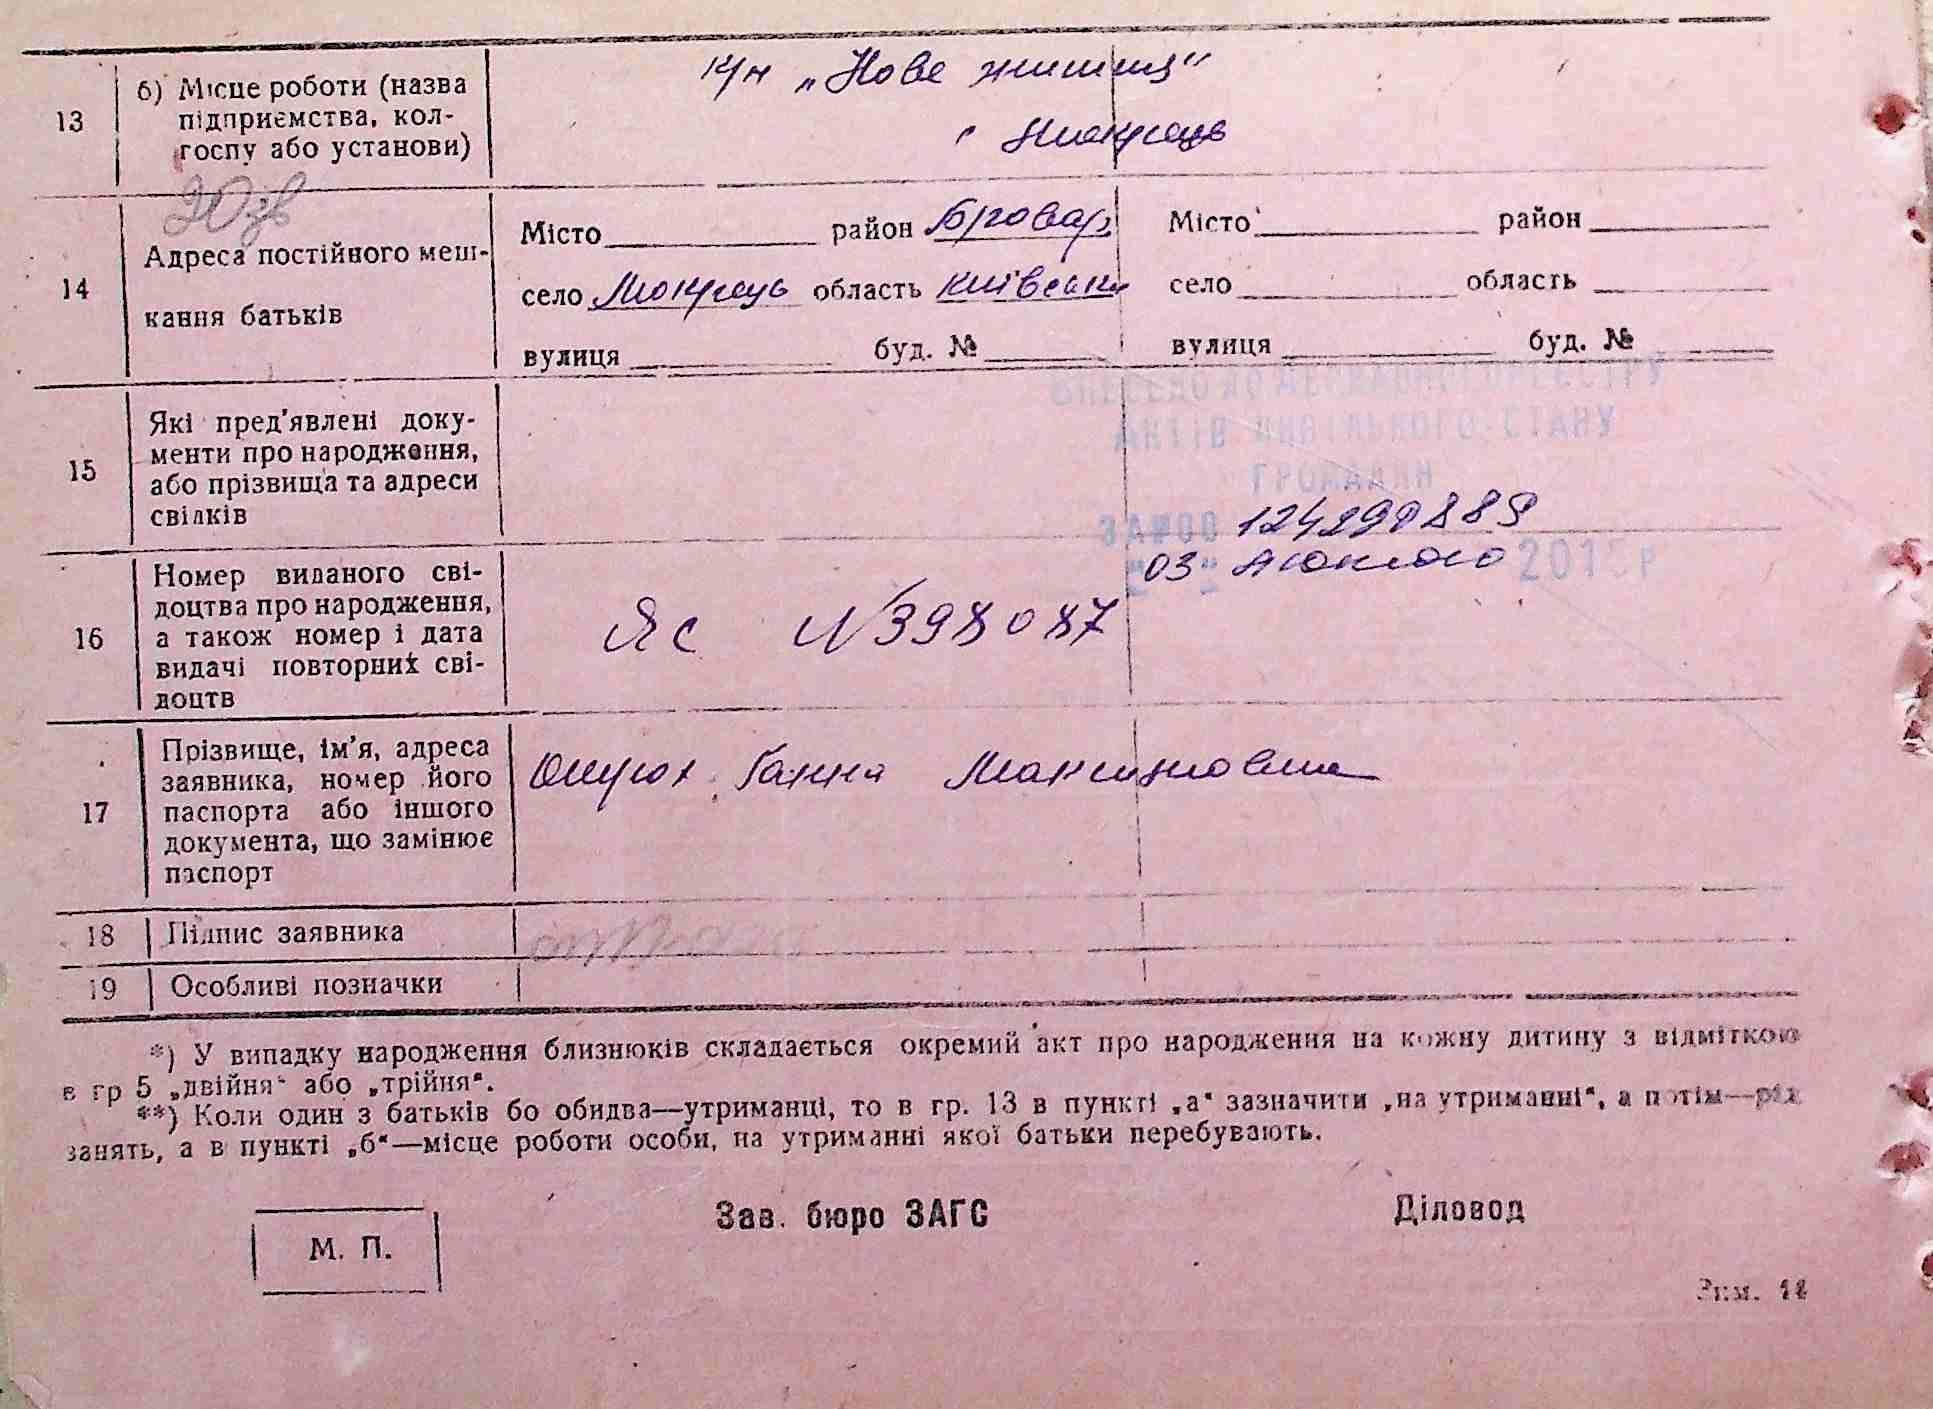 13
б) Місце роботи (назва
підприємства, кол-
госпу або установи)
к/г „Нове життя"
с Мокрець
20 зв
14
Адреса постійного меш-
кання батьків
Місто район Бровар
село Мокрець область Київськ
вулиця буд. №
Місто район
село область
вулиця буд. №
15
Які пред'явлені доку-
менти про народження,
або прізвища та адреси
свідків
ВНЕСЕНО ДО ДЕРЖАВНОГО РЕЄСТРУ
АКТІВ ЦИВІЛЬНОГО СТАНУ
ГРОМАДЯН
ЗА №00 124290889
"03" лютого 2015 р
16
Номер виданого сві-
доцтва про народження,
а також номер і дата
видачі повторних сві-
доцтв
ЯС N 398087
17
Прізвище, ім'я, адреса
заявника, номер його
паспорта або іншого
документа, що замінює
паспорт
Ганна Максимовна
18
Підпис заявника
19
Особливі позначки
*) У випадку народження близнюків складається окремий акт про народження на кожну дитину з відміткою
в гр 5 „двійня" або „трійня".
**) Коли один з батьків бо обидва—утриманці, то в гр. 13 в пункті „а" зазначити „на утриманні", а потім—рід
занять, а в пункті „б"—місце роботи особи, на утриманні якої батьки перебувають.
М. П.
Зав. бюро ЗАГС
Діловод
Зам. 14